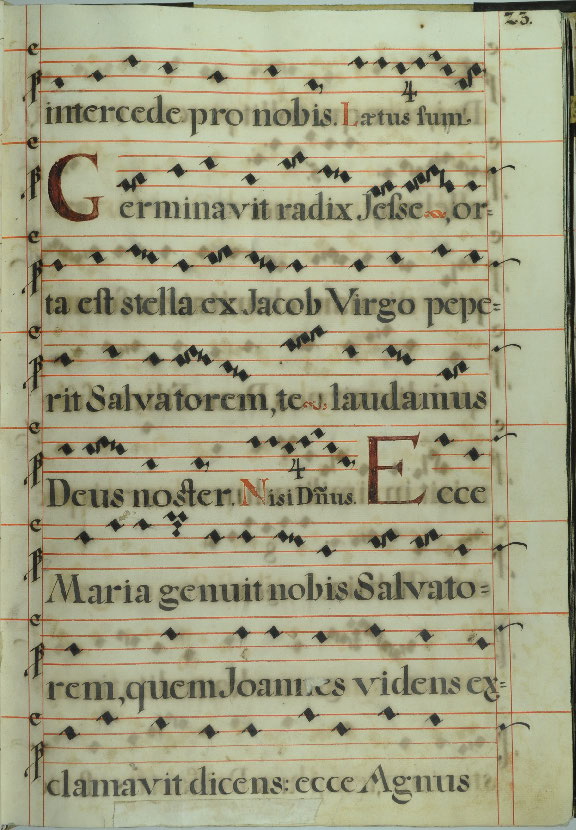 23.
intercede pro nobis. Lætus sum.
4
Germinavit radix Jesse, or-
ta est stella ex Jacob Virgo pepe=
rit Salvatorem, te laudamus
Deus noster. Nisi Dñus. Ecce
4
Maria genuit nobis Salvato=
rem, quem Joannes videns ex=
clamavit dicens: ecce Agnus